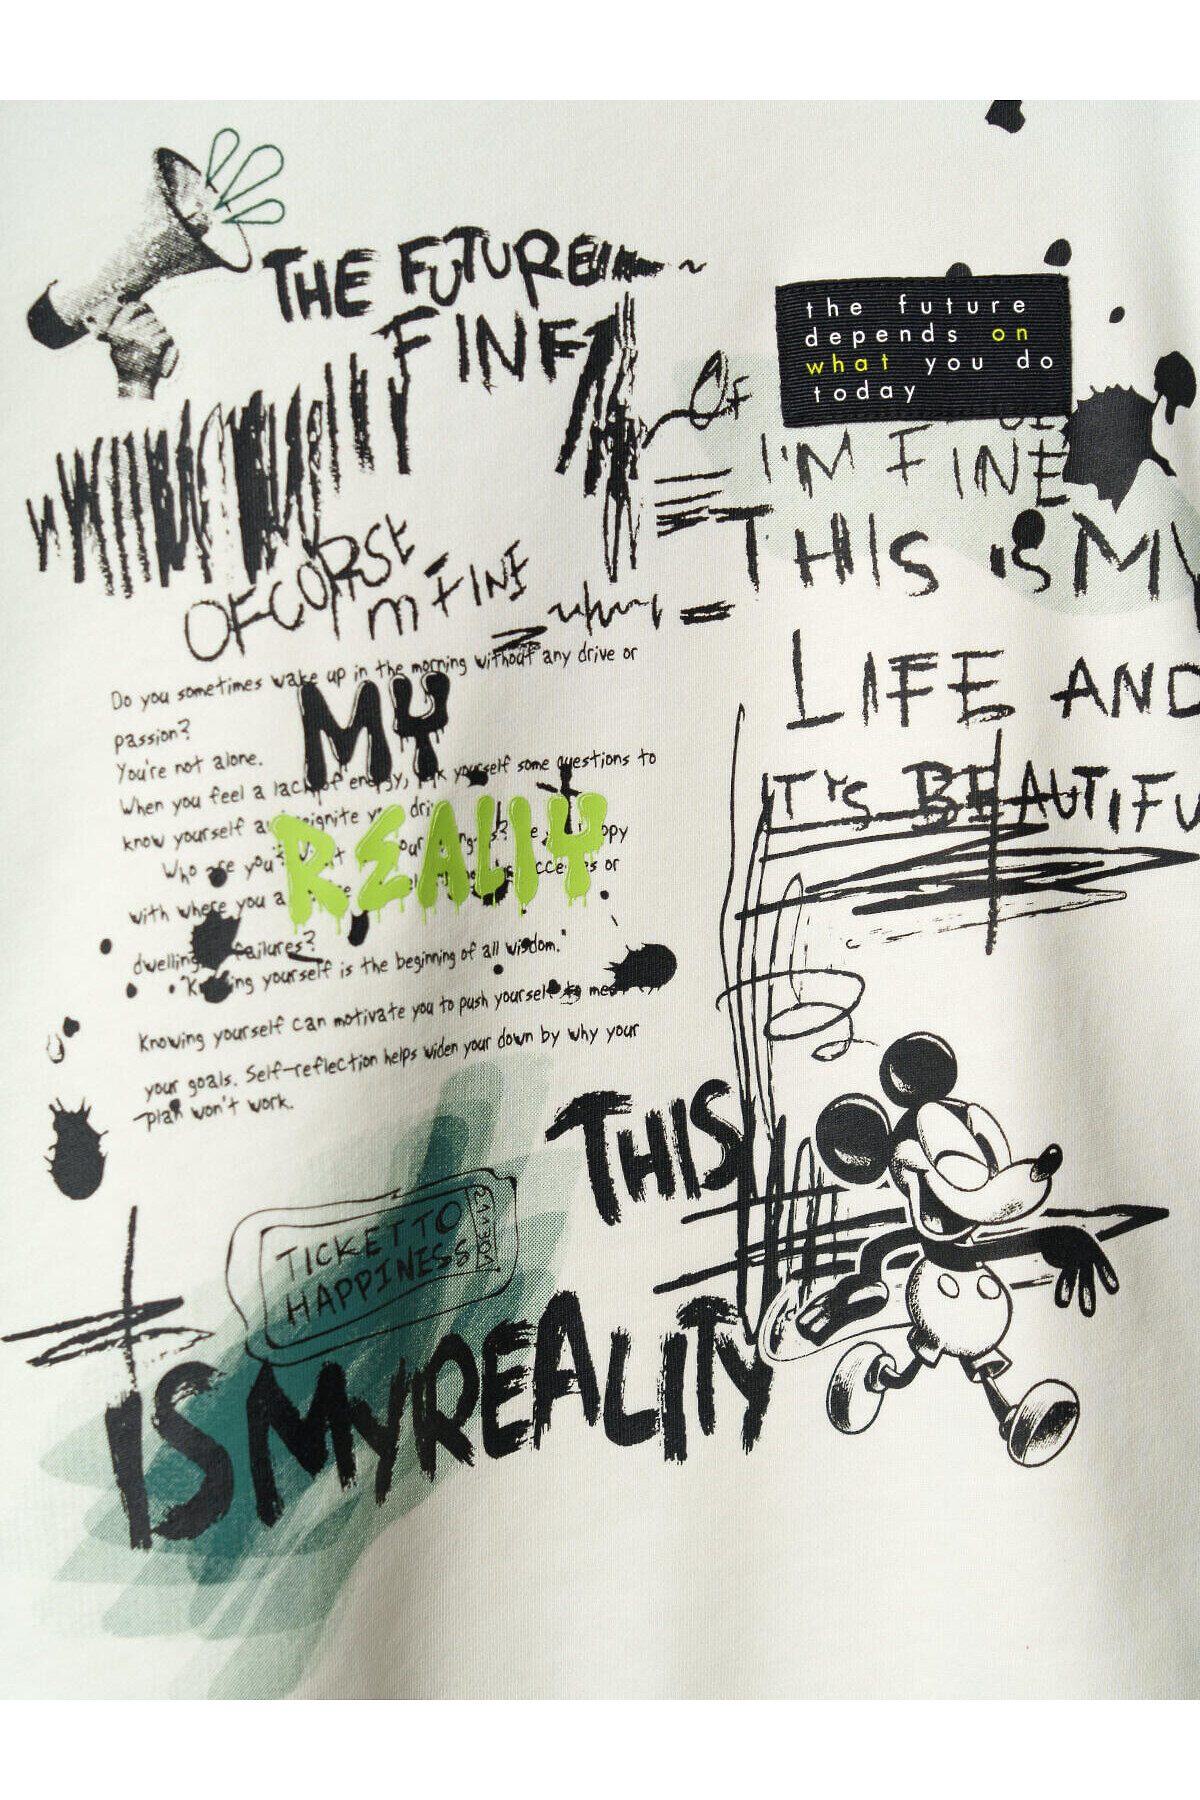 THE FUTURE
FINE
the future
depends on
what you do
today
OF
I'M FINE
THIS IS MY
LIFE AND
IT'S BEAUTIFU
OFCOURSE
M FINE
Do you sometimes wake up in the morning without any drive or
passion?
You're not alone.
When you feel a lack of energy, yourself some questions to
know yourself
Who are you?
with where you or
dwelling failures?
"Knowing yourself is the beginning of all wisdom."
Knowing yourself can motivate you to push yourself to
your goals. Self-reflection helps widen your down by why your
plan won't work.
MY
REALIY
THIS
TICKET TO
HAPPINESS
IS MY REALITY